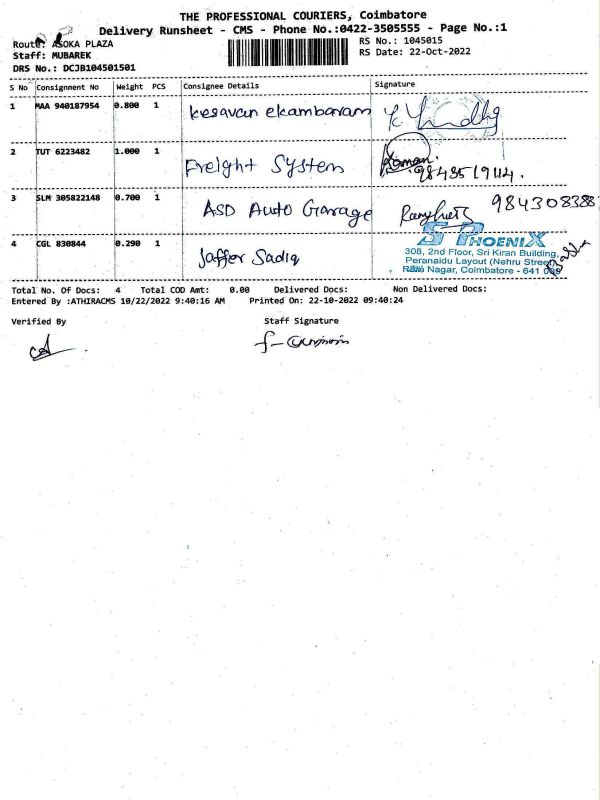 THE PROFESSIONAL COURIERS, Coimbatore
Delivery Runsheet - CMS - Phone No.:0422-3505555 - Page No.:1
Route: ASOKA PLAZA
RS No.: 1045015
Staff: MUBAREK
RS Date: 22-Oct-2022
DRS No.: DCJB104501501
S No Consignment No Weight PCS Consignee Details Signature
1 MAA 940187954 0.800 1 Kesavan ekambaram
2 TUT 6223482 1.000 1 Freight System
3 SLM 305822148 0.700 1 ASD Auto Garage
9843083887
4 CGL 830844 0.290 1 Jaffer Sadiq
PHOENIX
308, 2nd Floor, Sri Kiran Building,
Peranaidu Layout (Nehru Street)
Ram Nagar, Coimbatore - 641 009
Total No. Of Docs: 4 Total COD Amt: 0.00 Delivered Docs: Non Delivered Docs:
Entered By :ATHIRACMS 10/22/2022 9:40:16 AM Printed On: 22-10-2022 09:40:24
Verified By Staff Signature